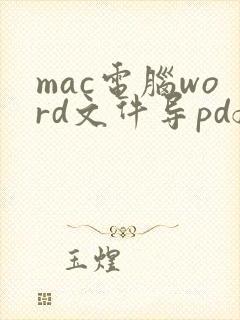 mac電腦wo
rd文件导pd
玉煌